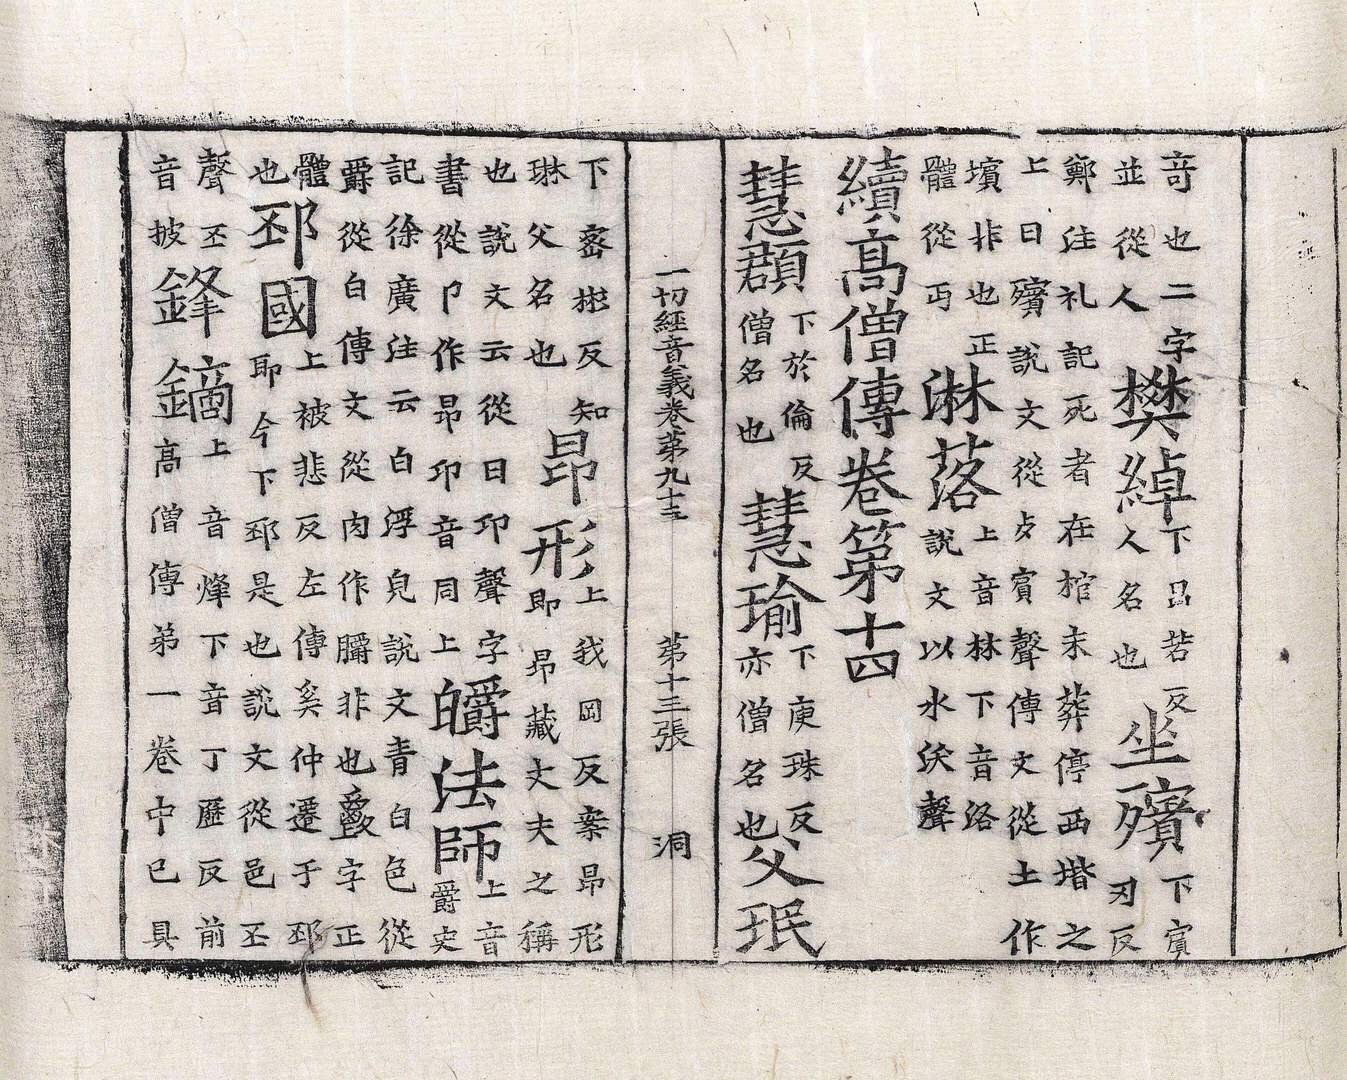 竒也二字
並從人
樊綽
下昌若反
人名也
坐殯
下賓
刃反
鄭注礼記死者在棺未葬停西堦之
上曰殯說文從歹賓聲傳文從土作
非也正
體從歺
淋落
上音林下音洛
說文以水沃聲
續高僧傳卷第十四
慧頵
下於倫反
僧名也
慧瑜
下庾珠反
亦僧名也
父珉
一切經音義卷第九十三 第十三張 洞
下密彬反知
琳父名也
昂形
上我岡反案昂形
即昂藏丈夫之稱
也說文云從日卬聲字
書從卩作昂卬音同上
皭法師
上音
爵史
記徐廣注云白淨皃說文青白色從
爵從白傳文從肉作非也字正
體
也
邳國
上被悲反左傳奚仲遷于邳
耶今下邳是也說文從邑丕
聲丕
音披
鋒鏑
上音烽下音丁歷反前
高僧傳弟一卷中已具